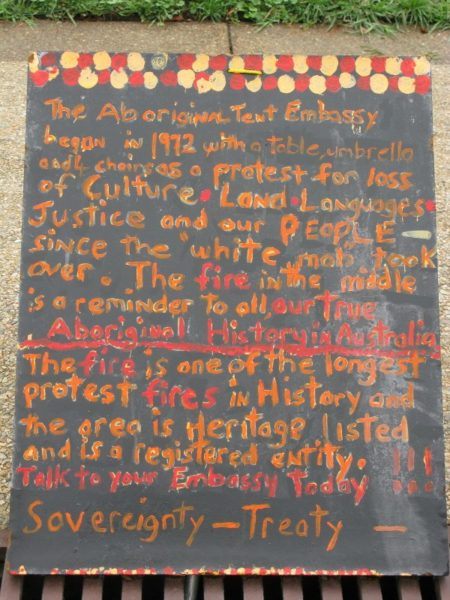 The Aboriginal Tent Embassy
began in 1972 with a table, umbrella
and 4 chairs as a protest for loss
of Culture • Land • Languages •
Justice and our PEOPLE –
since the "white mob" took
over. The fire in the middle
is a reminder to all, our true
Aboriginal History in Australia
The fire is one of the longest
protest fires in History and
the area is Heritage listed
and is a registered entity.
Talk to your Embassy Today !!!
Sovereignty – Treaty –